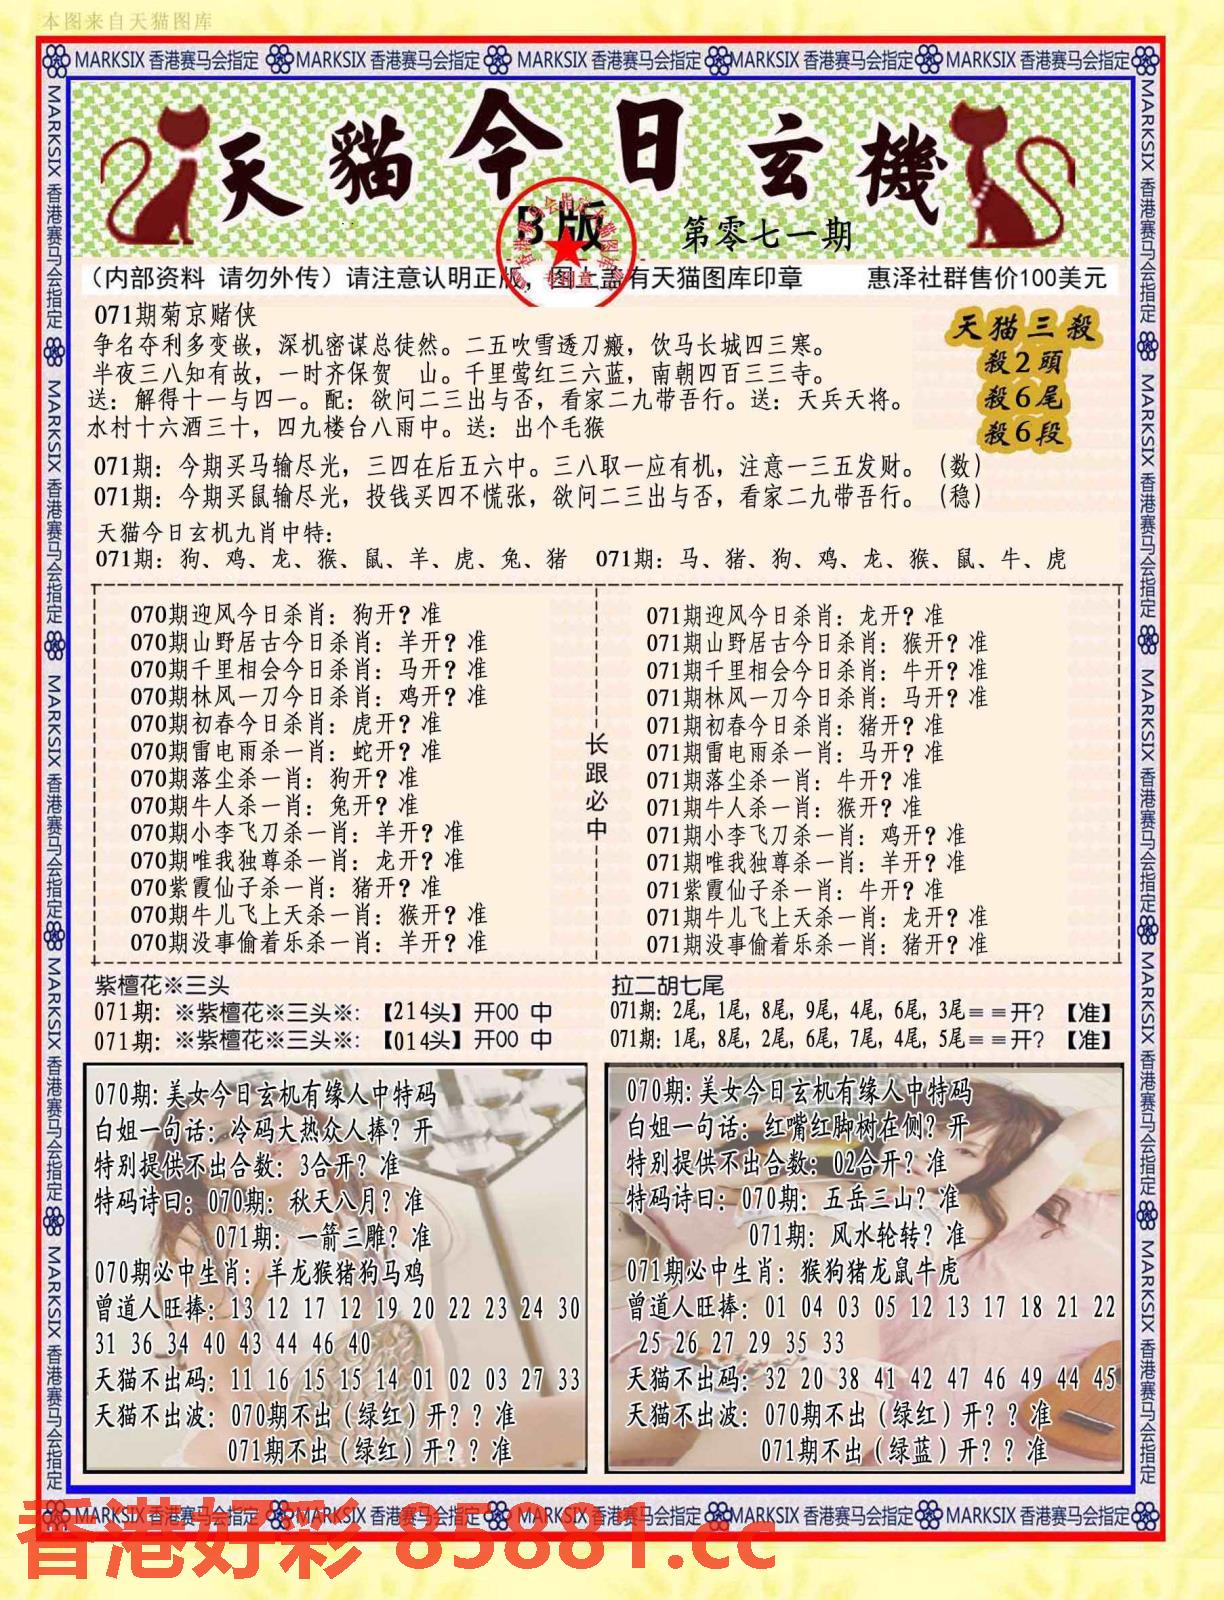 本图来自天猫图库
MARKSIX 香港赛马会指定 MARKSIX 香港赛马会指定 MARKSIX 香港赛马会指定 MARKSIX 香港赛马会指定 MARKSIX 香港赛马会指定
天貓今日玄機
B版
第零七一期
（内部资料 请勿外传）请注意认明正版，图上盖有天猫图库印章 惠泽社群售价100美元
071期菊京赌侠
争名夺利多变嵌，深机密谋总徒然。二五吹雪透刀瘢，饮马长城四三寒。
半夜三八知有故，一时齐保贺 山。千里莺红三六蓝，南朝四百三三寺。
送：解得十一与四一。配：欲问二三出与否，看家二九带吾行。送：天兵天将。
水村十六酒三十，四九楼台八雨中。送：出个毛猴
天猫三殺
殺2頭
殺6尾
殺6段
071期：今期买马输尽光，三四在后五六中。三八取一应有机，注意一三五发财。（数）
071期：今期买鼠输尽光，投钱买四不慌张，欲问二三出与否，看家二九带吾行。（稳）
天猫今日玄机九肖中特：
071期：狗、鸡、龙、猴、鼠、羊、虎、兔、猪 071期：马、猪、狗、鸡、龙、猴、鼠、牛、虎
070期迎风今日杀肖：狗开？准
070期山野居古今日杀肖：羊开？准
070期千里相会今日杀肖：马开？准
070期林风一刀今日杀肖：鸡开？准
070期初春今日杀肖：虎开？准
070期雷电雨杀一肖：蛇开？准
070期落尘杀一肖：狗开？准
070期牛人杀一肖：兔开？准
070期小李飞刀杀一肖：羊开？准
070期唯我独尊杀一肖：龙开？准
070紫霞仙子杀一肖：猪开？准
070期牛儿飞上天杀一肖：猴开？准
070期没事偷着乐杀一肖：羊开？准
长跟必中
071期迎风今日杀肖：龙开？准
071期山野居古今日杀肖：猴开？准
071期千里相会今日杀肖：牛开？准
071期林风一刀今日杀肖：马开？准
071期初春今日杀肖：猪开？准
071期雷电雨杀一肖：马开？准
071期落尘杀一肖：牛开？准
071期牛人杀一肖：猴开？准
071期小李飞刀杀一肖：鸡开？准
071期唯我独尊杀一肖：羊开？准
071紫霞仙子杀一肖：牛开？准
071期牛儿飞上天杀一肖：龙开？准
071期没事偷着乐杀一肖：猪开？准
紫檀花※三头
071期：※紫檀花※三头※:【214头】开00 中
071期：※紫檀花※三头※:【014头】开00 中
拉二胡七尾
071期：2尾，1尾，8尾，9尾，4尾，6尾，3尾＝＝开？【准】
071期：1尾，8尾，2尾，6尾，7尾，4尾，5尾＝＝开？【准】
070期:美女今日玄机有缘人中特码
白姐一句话：冷码大热众人捧？开
特别提供不出合数：3合开？准
特码诗曰：070期：秋天八月？准
071期：一箭三雕？准
070期必中生肖：羊龙猴猪狗马鸡
曾道人旺捧：13 12 17 12 19 20 22 23 24 30
31 36 34 40 43 44 46 40
天猫不出码：11 16 15 15 14 01 02 03 27 33
天猫不出波：070期不出（绿红）开？？准
071期不出（绿红）开？？准
070期:美女今日玄机有缘人中特码
白姐一句话：红嘴红脚树在侧？开
特别提供不出合数：02合开？准
特码诗曰：070期：五岳三山？准
071期：风水轮转？准
071期必中生肖：猴狗猪龙鼠牛虎
曾道人旺捧：01 04 03 05 12 13 17 18 21 22
25 26 27 29 35 33
天猫不出码：32 20 38 41 42 47 46 49 44 45
天猫不出波：070期不出（绿红）开？？准
071期不出（绿蓝）开？？准
MARKSIX 香港赛马会指定 MARKSIX 香港赛马会指定 MARKSIX 香港赛马会指定 MARKSIX 香港赛马会指定 MARKSIX 香港赛马会指定
MARKSIX 香港赛马会指定 MARKSIX 香港赛马会指定 MARKSIX 香港赛马会指定 MARKSIX 香港赛马会指定 MARKSIX 香港赛马会指定
MARKSIX 香港赛马会指定 MARKSIX 香港赛马会指定 MARKSIX 香港赛马会指定 MARKSIX 香港赛马会指定 MARKSIX 香港赛马会指定
香港好彩 85881.cc